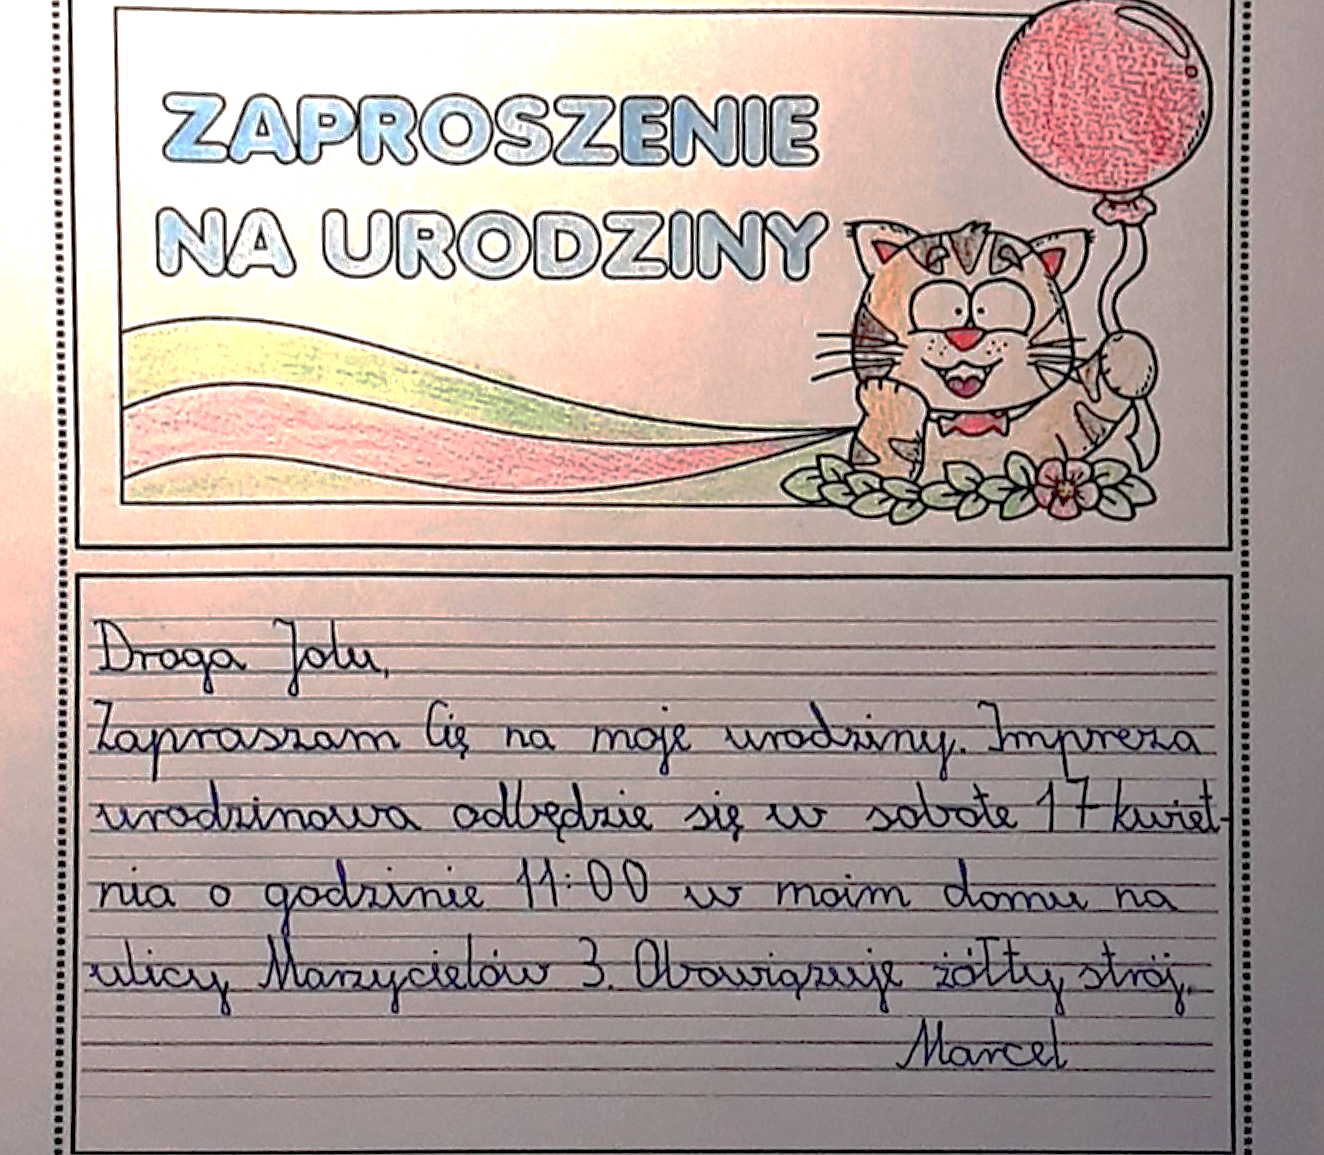 ZAPROSZENIE
NA URODZINY
Droga Jolu,
Zapraszam Cię na moje urodziny. Impreza
urodzinowa odbędzie się w sobote 17 kwiet-
nia o godzinie 11:00 w moim domu na
ulicy Marzycielów 3. Obowiązuje żółty strój.
Marcel